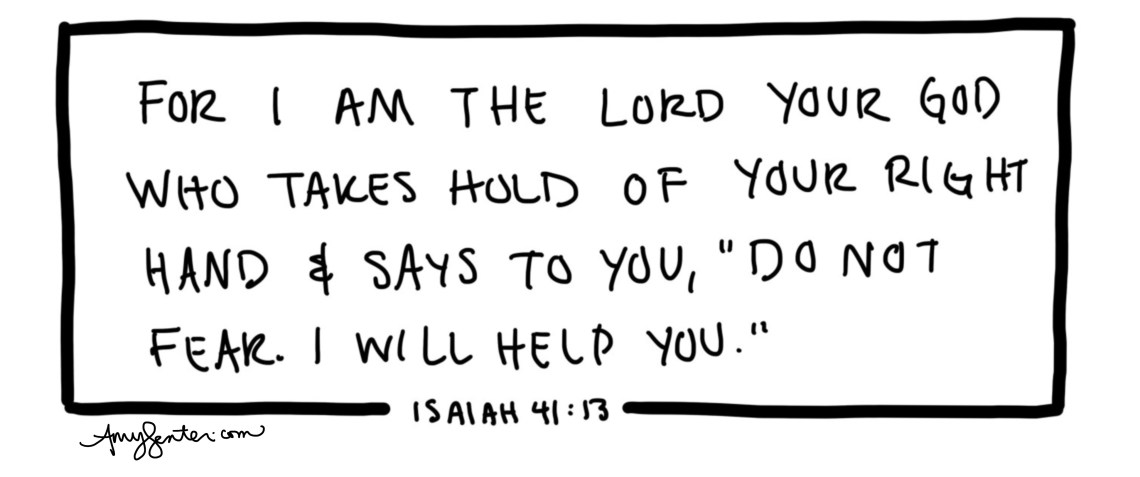 FOR I AM THE LORD YOUR GOD
WHO TAKES HOLD OF YOUR RIGHT
HAND & SAYS TO YOU, "DO NOT
FEAR. I WILL HELP YOU."
ISAIAH 41:13
AmySenter.com